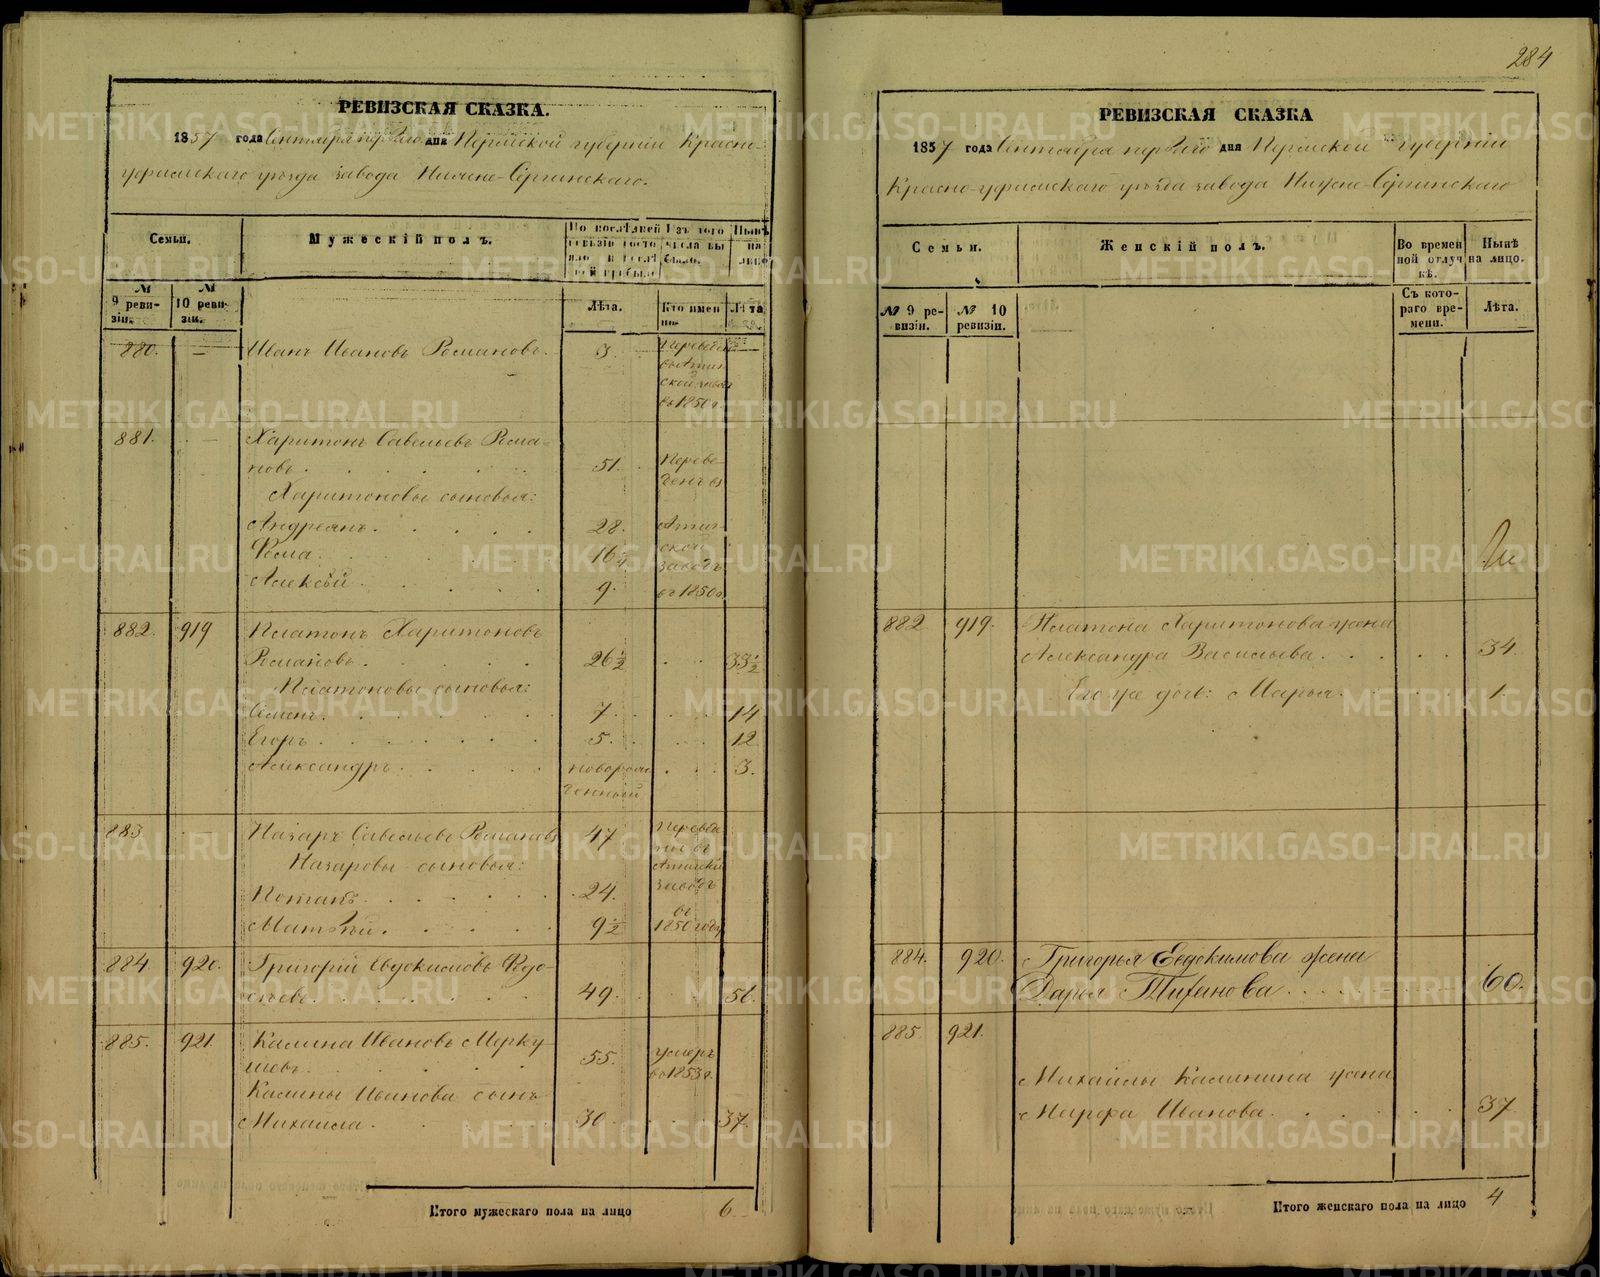 284
РЕВИЗСКАЯ СКАЗКА.
1857 года Сентября перваго дня Пермской губернiи Красно-
уфимскаго уѣзда завода Нижне-Сергинскаго.
Семьи.
Мужескiй полъ.
По послѣдней ревизiи состояло и послѣ той прибыло
Изъ того числа выбыло.
Нынѣ на лицо
№ 9 ревизiи.
№ 10 ревизiи.
Лѣта.
Кто именно
Лѣта
880. — Иванъ Ивановъ Романовъ. 3
въ 1850 г.
881. — Харитонъ Савельевъ Рома-
новъ. 51. Переве-
денъ въ
Харитоновы сыновья:
Андреянъ. 28. Атиг-
Фома. 16 ской
Алексѣй. 9. заводъ
въ 1850 г.
882. 919 Платонъ Харитоновъ
Романовъ. 26½ 33½
Платоновы сыновья:
Семенъ. 7. 14
Егоръ. 5. 12
Александръ. новорож- 3.
денный
883. Назаръ Савельевъ Романовъ 47
Назаровы сыновья:
Потапъ. 24.
заводъ
въ
Матвѣй. 9½ 1850 году
884 920. Григорiй Евдокимовъ Федо-
сѣевъ. 49. 56.
885. 921. Калина Ивановъ Мерку-
шевъ. 55. умеръ
въ 1853 г.
Калины Иванова сынъ
Михайла. 30. 37.
Итого мужескаго пола на лицо 6
РЕВИЗСКАЯ СКАЗКА
1857 года Сентября перваго дня Пермской губернiи
Красно-уфимскаго уѣзда завода Нижне-Сергинскаго
Семьи.
Женскiй полъ.
Во временной отлучкѣ.
Нынѣ на лицо.
№ 9 ревизiи.
№ 10 ревизiи.
Съ котораго времени.
Лѣта.
882 919. Платона Харитонова жена
Александра Васильева. 34.
Его же дочь: Марья. 1.
884. 920. Григорья Евдокимова жена
Дарья Тиханова 60.
885. 921.
Михайлы Калинина жена
Марфа Иванова. 37
Итого женскаго пола на лицо 4
METRIKI.GASO-URAL.RU